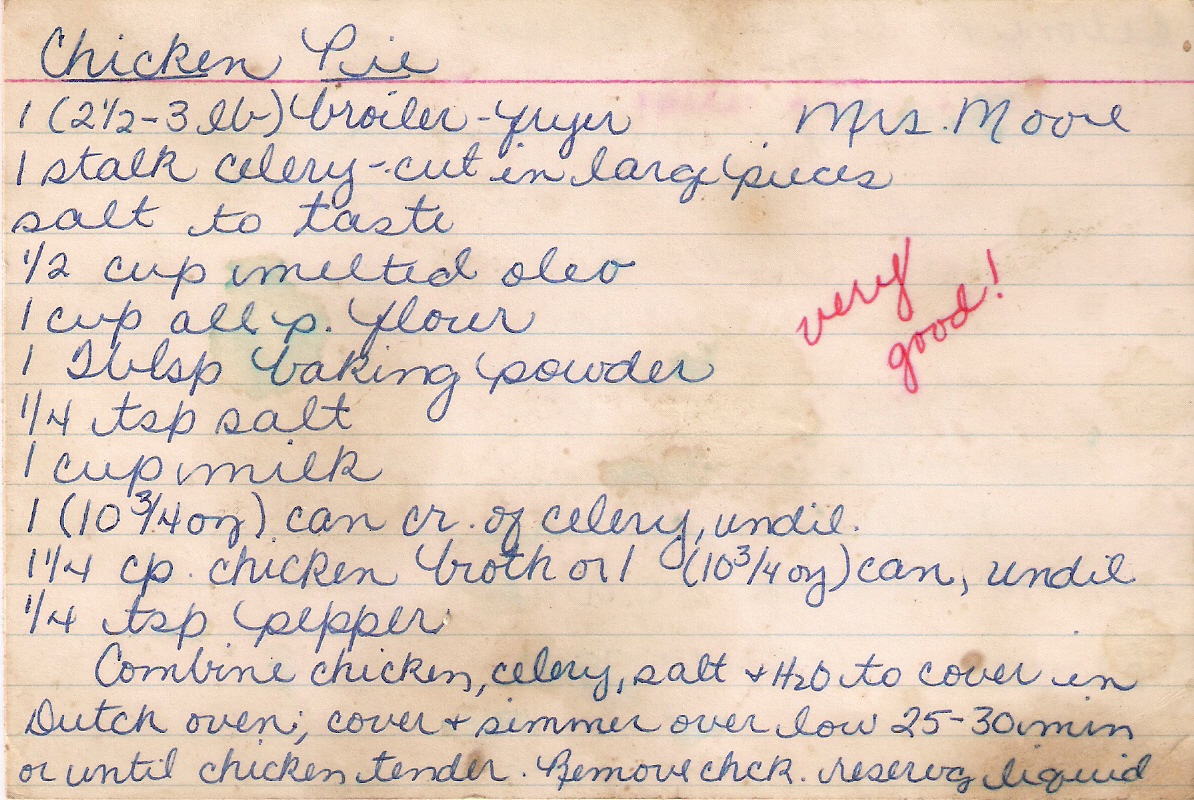 Chicken Pie
1 (2½-3 lb) broiler-fryer Mrs. Moore
1 stalk celery-cut in large pieces
salt to taste
½ cup melted oleo
1 cup all p. flour
1 Tblsp baking powder
¼ tsp salt
1 cup milk
1 (10¾ oz) can cr. of celery, undil.
1¼ cp. chicken broth or 1 (10¾ oz) can, undil
¼ tsp pepper
very
good!
Combine chicken, celery, salt + H2O to cover in
Dutch oven; cover + simmer over low 25-30 min
or until chicken tender. Remove chck. reserv liquid